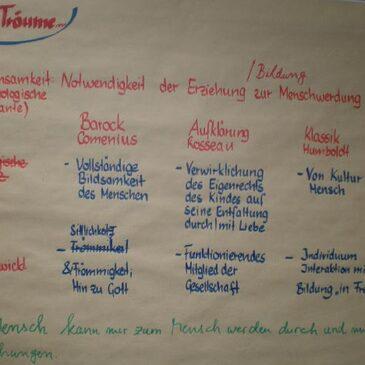 Träume...
/Bildung
nsamkeit: Notwendigkeit der Erziehung zur Menschwerdung
ologische
ante)
Barock Aufklärung Klassik
Comenius Rosseau Humboldt
- Vollständige
Bildsamkeit
des Menschen
- Verwirklichung
des Eigenrechts
des Kindes auf
seine Entfaltung
durch/mit Liebe
- Von Kultur
Mensch
Sittlichkeit
- Frömmikei
& Frömmigkeit,
Hin zu Gott
- Funktionierendes
Mitglied der
Gesellschaft
- Individuum
Interaktion mi
Bildung „in Fr
wickl
Mensch kann nur zum Mensch werden durch und m
hungen.